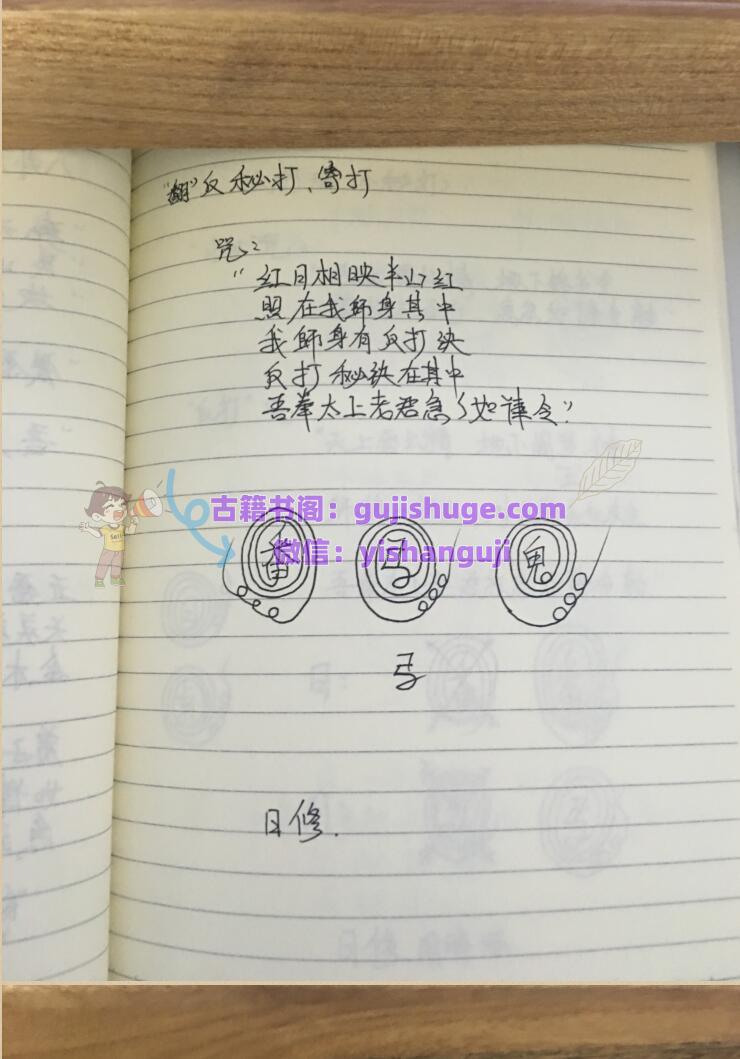 "翻"反秘打、寄打
咒：
"红日相映半山红
照在我師身其中
我師身有反打决
反打秘诀在其中
吾奉太上老君急々如律令"
古籍书阁：gujishuge.com
微信：yishanguji
番 鬼
日修.